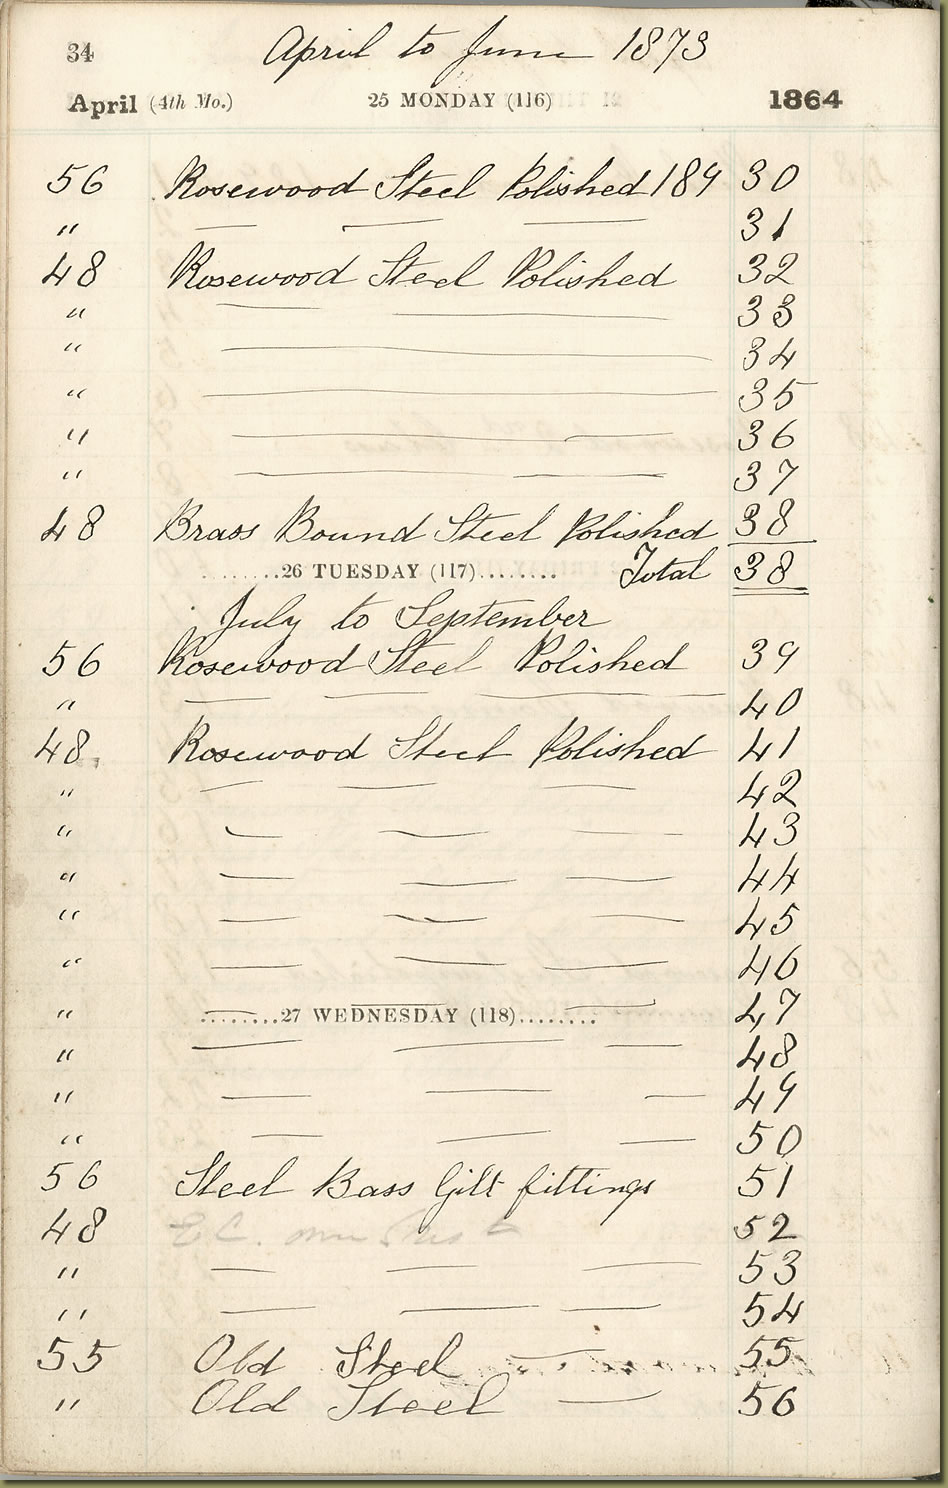 34 April to June 1873
April (4th Mo.) 25 MONDAY (116) 1864
56 Rosewood Steel Polished 189 30
" — — — 31
48 Rosewood Steel Polished 32
" — — 33
" — 34
" — 35
" — 36
" — 37
48 Brass Bound Steel Polished 38
........26 TUESDAY (117)........ Total 38
July to September
56 Rosewood Steel Polished 39
" — — — 40
48 Rosewood Steel Polished 41
" — — — 42
" — — — 43
" — — — 44
" — — — 45
" — — — 46
" — — — 47
........27 WEDNESDAY (118)........
" — — — 48
" — — — 49
" — — — 50
56 Steel Bass Gilt fittings 51
48 E C. 52
" — — — 53
" — — — 54
55 Old Steel — 55
" Old Steel — 56